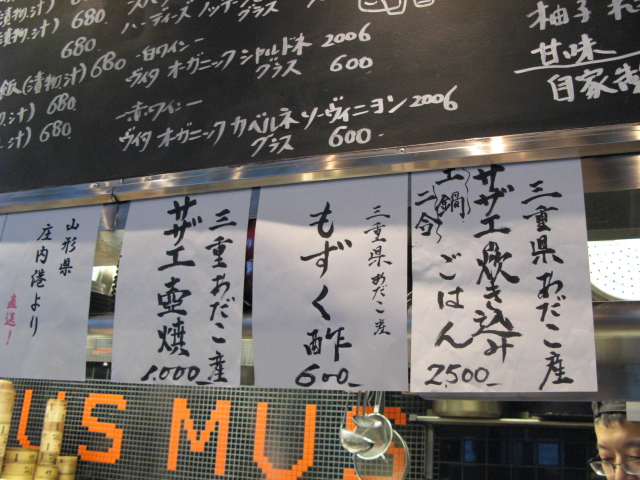 漬物、汁)
680
漬物、汁)
680
飯(漬物、汁) 680
汁) 680
汁) 680
グラス
—白ワイン—
ヴィタ オーガニック シャルドネ 2006
グラス 600
—赤ワイン—
ヴィタ オーガニック カベルネ ソーヴィニヨン 2006
グラス 600
柚子
甘味
自家
三重県あだこ産
サザエ炊き込み
ごはん
土鍋
二合
2500
三重県あだこ産
もずく酢
600
三重あだこ産
サザエ壺焼
1.000
山形県
庄内港より
直送!
US MUS